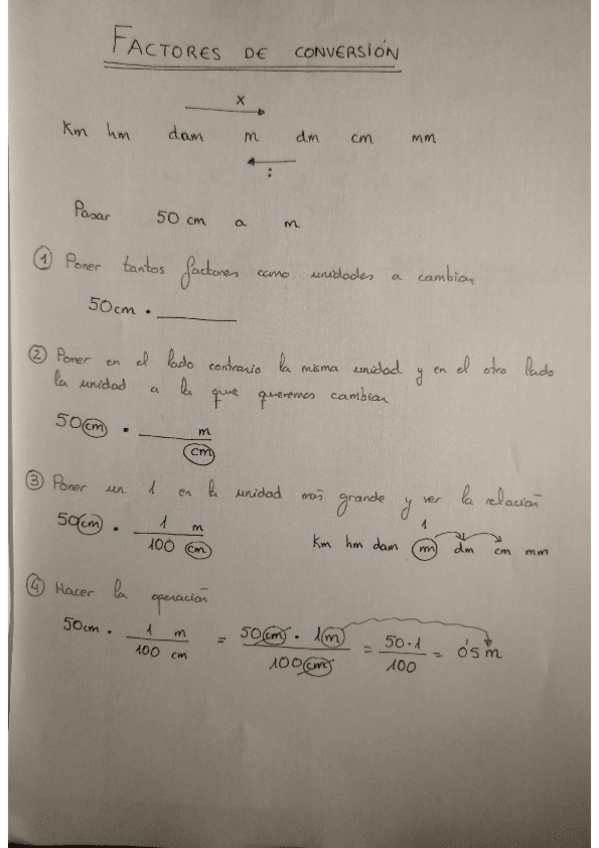 FACTORES DE CONVERSIÓN
x
Km hm dam m dm cm mm
:
Pasar 50 cm a m
① Poner tantos factores como unidades a cambiar
50cm · ____
② Poner en el lado contrario la misma unidad y en el otro lado
la unidad a la que queremos cambiar
50 cm · ____ m
cm
③ Poner un 1 en la unidad más grande y ver la relación
50 cm · 1 m
100 cm
1
Km hm dam m dm cm mm
④ Hacer la operación
50cm · 1 m / 100 cm = 50 cm · 1 m / 100 cm = 50·1 / 100 = 0'5 m